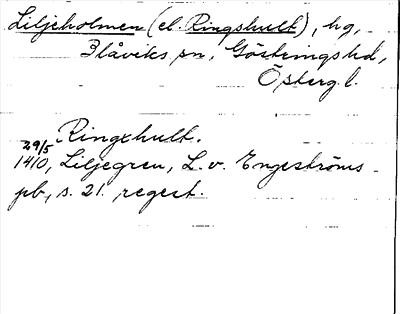 Liljeholmen (el. Ringshult), hg,
Blåviks sn, Göstrings hd,
Östergl.
Ringxhult.
29/5
1410, Liljegren, L. v. Engeströms
pb, s. 21. regest.